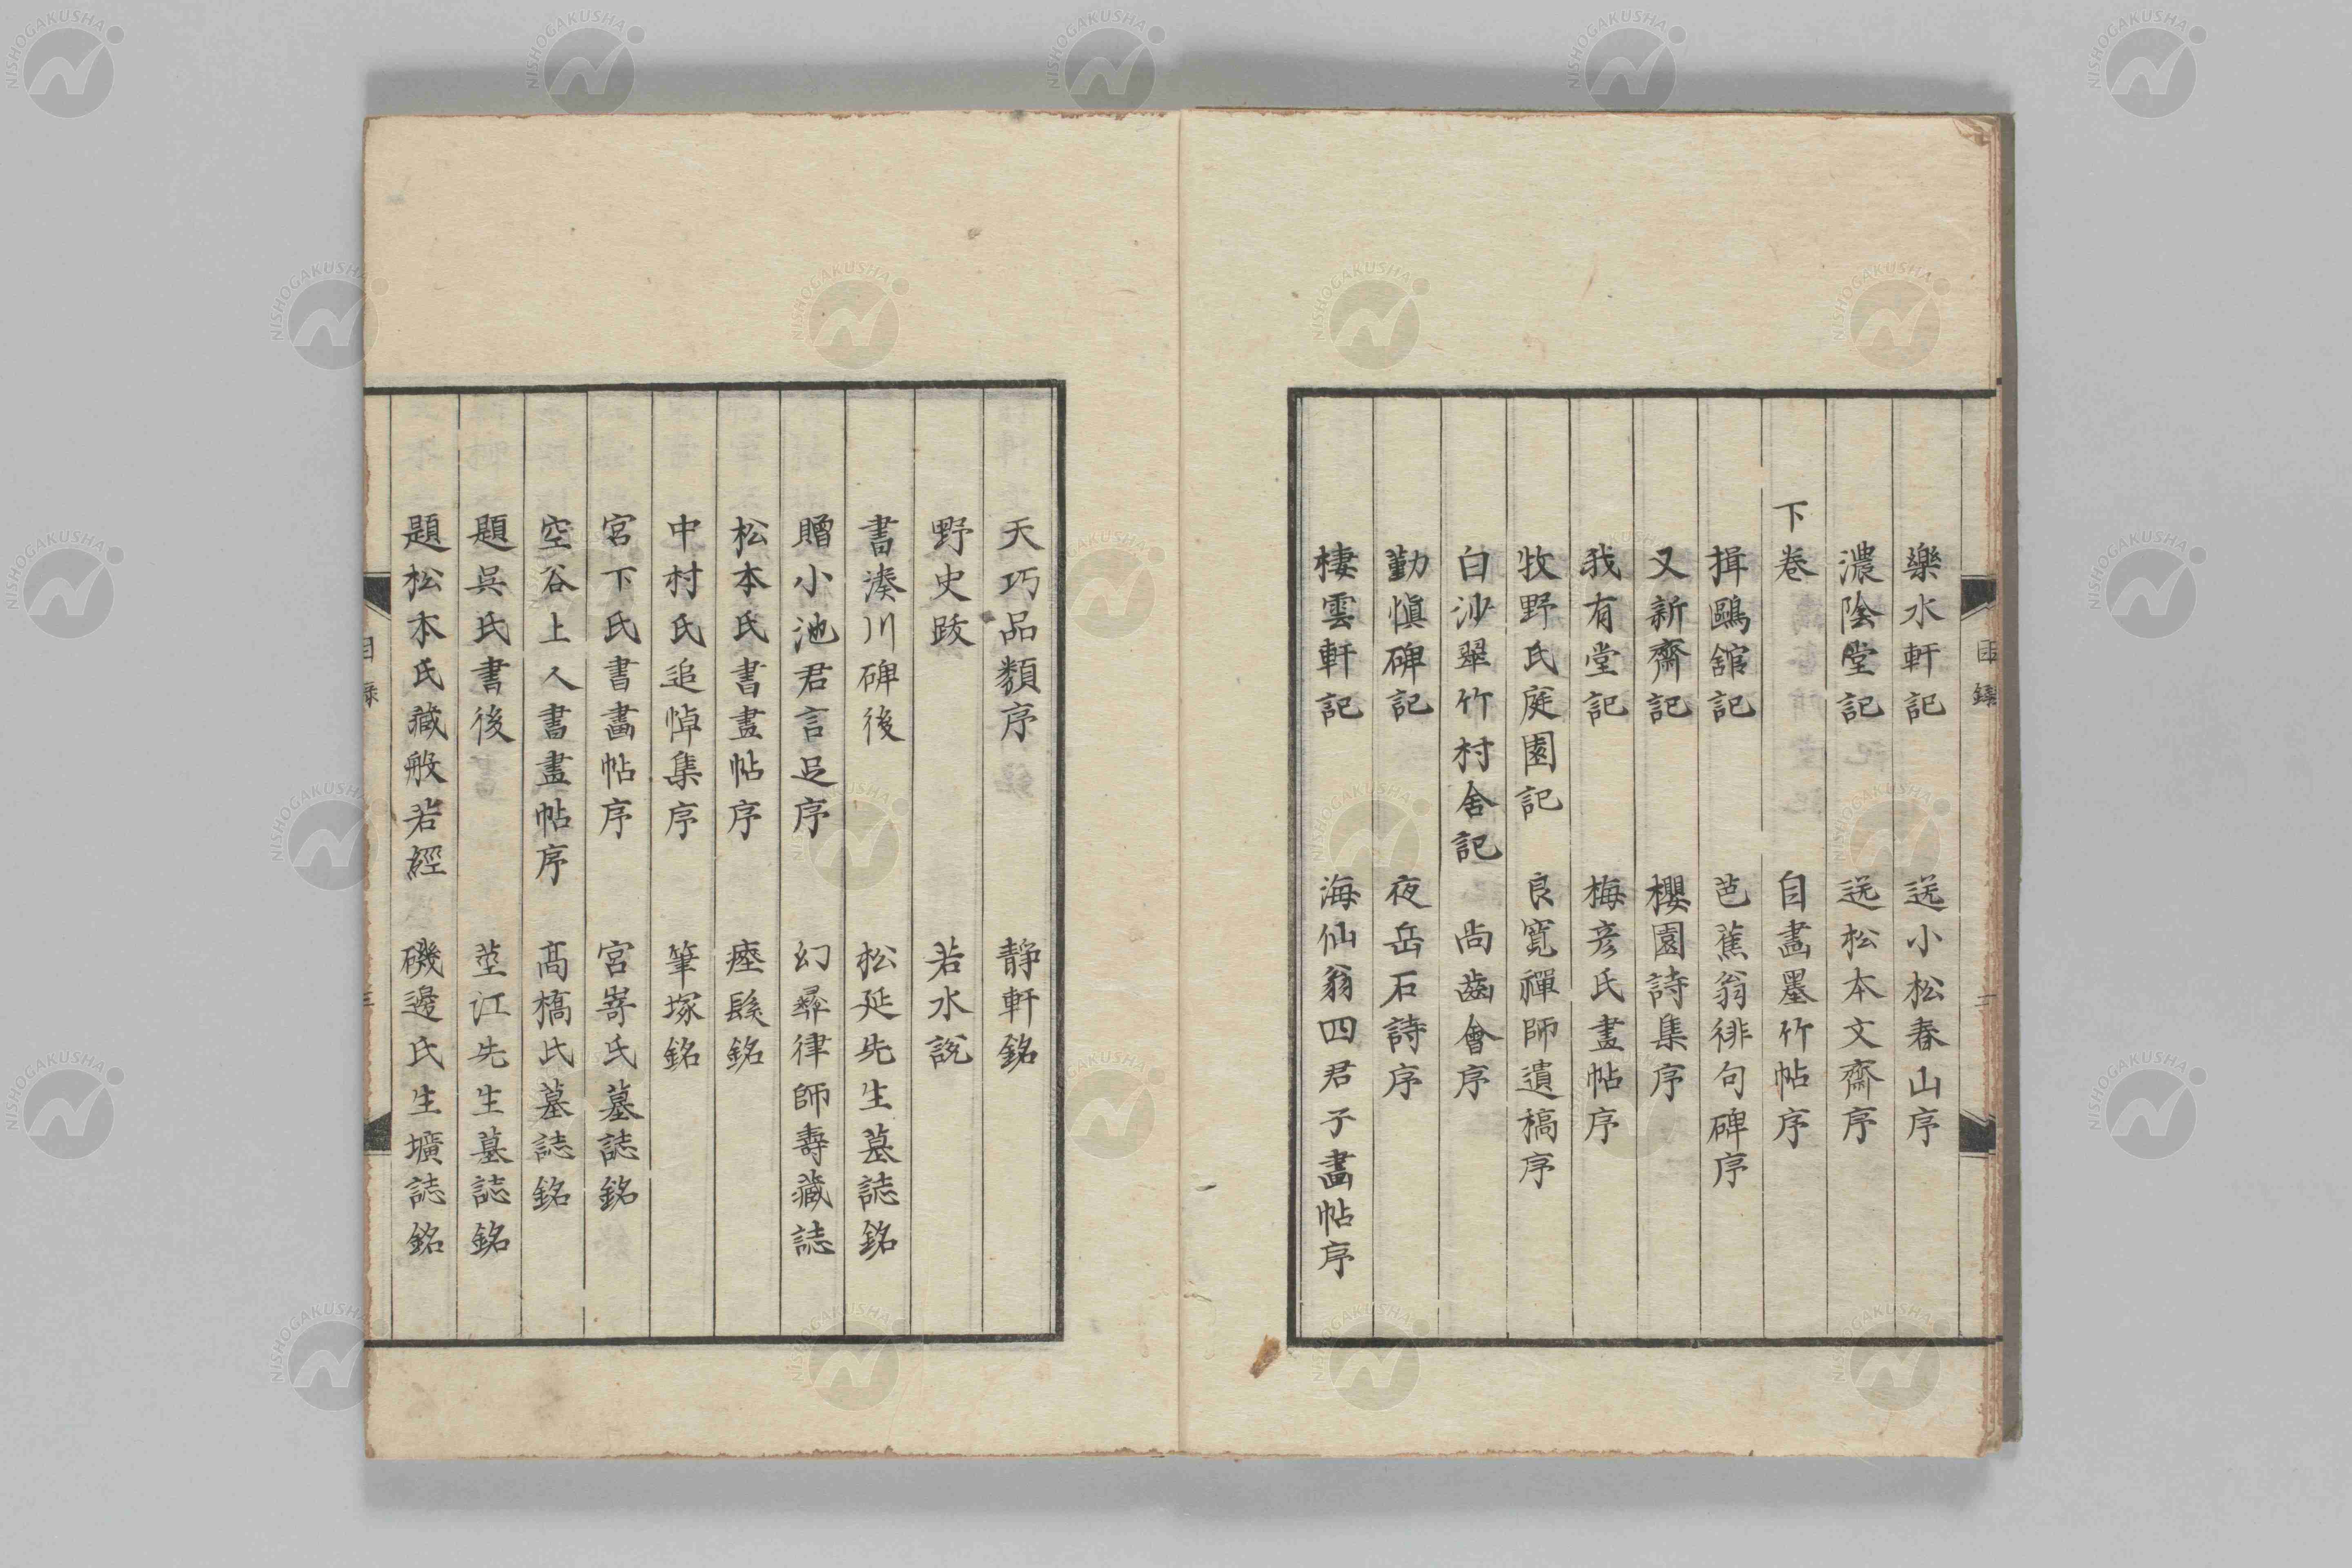 樂水軒記　送小松春山序
濃陰堂記　送松本文齋序
下卷　自畵墨竹帖序
揖鷗舘記　芭蕉翁徘句碑序
又新齋記　櫻園詩集序
我有堂記　梅彦氏畫帖序
牧野氏庭園記　良寛禪師遺稿序
白沙翠竹村舍記　尚齒會序
勤愼碑記　夜岳石詩序
棲雲軒記　海仙翁四君子畵帖序
目錄　二
天巧品類序　静軒銘
野史跋　若水説
書湊川碑後　松延先生墓誌銘
贈小池君言足序　幻彝律師壽藏誌
松本氏書畫帖序　瘞髮銘
中村氏追悼集序　筆塚銘
宮下氏書畵帖序　宮嵜氏墓誌銘
空谷上人書畫帖序　髙橋氏墓誌銘
題吳氏書後　莖江先生墓誌銘
題松本氏藏般若經　磯邊氏生壙誌銘
目錄　三
NISHOGAKUSHA